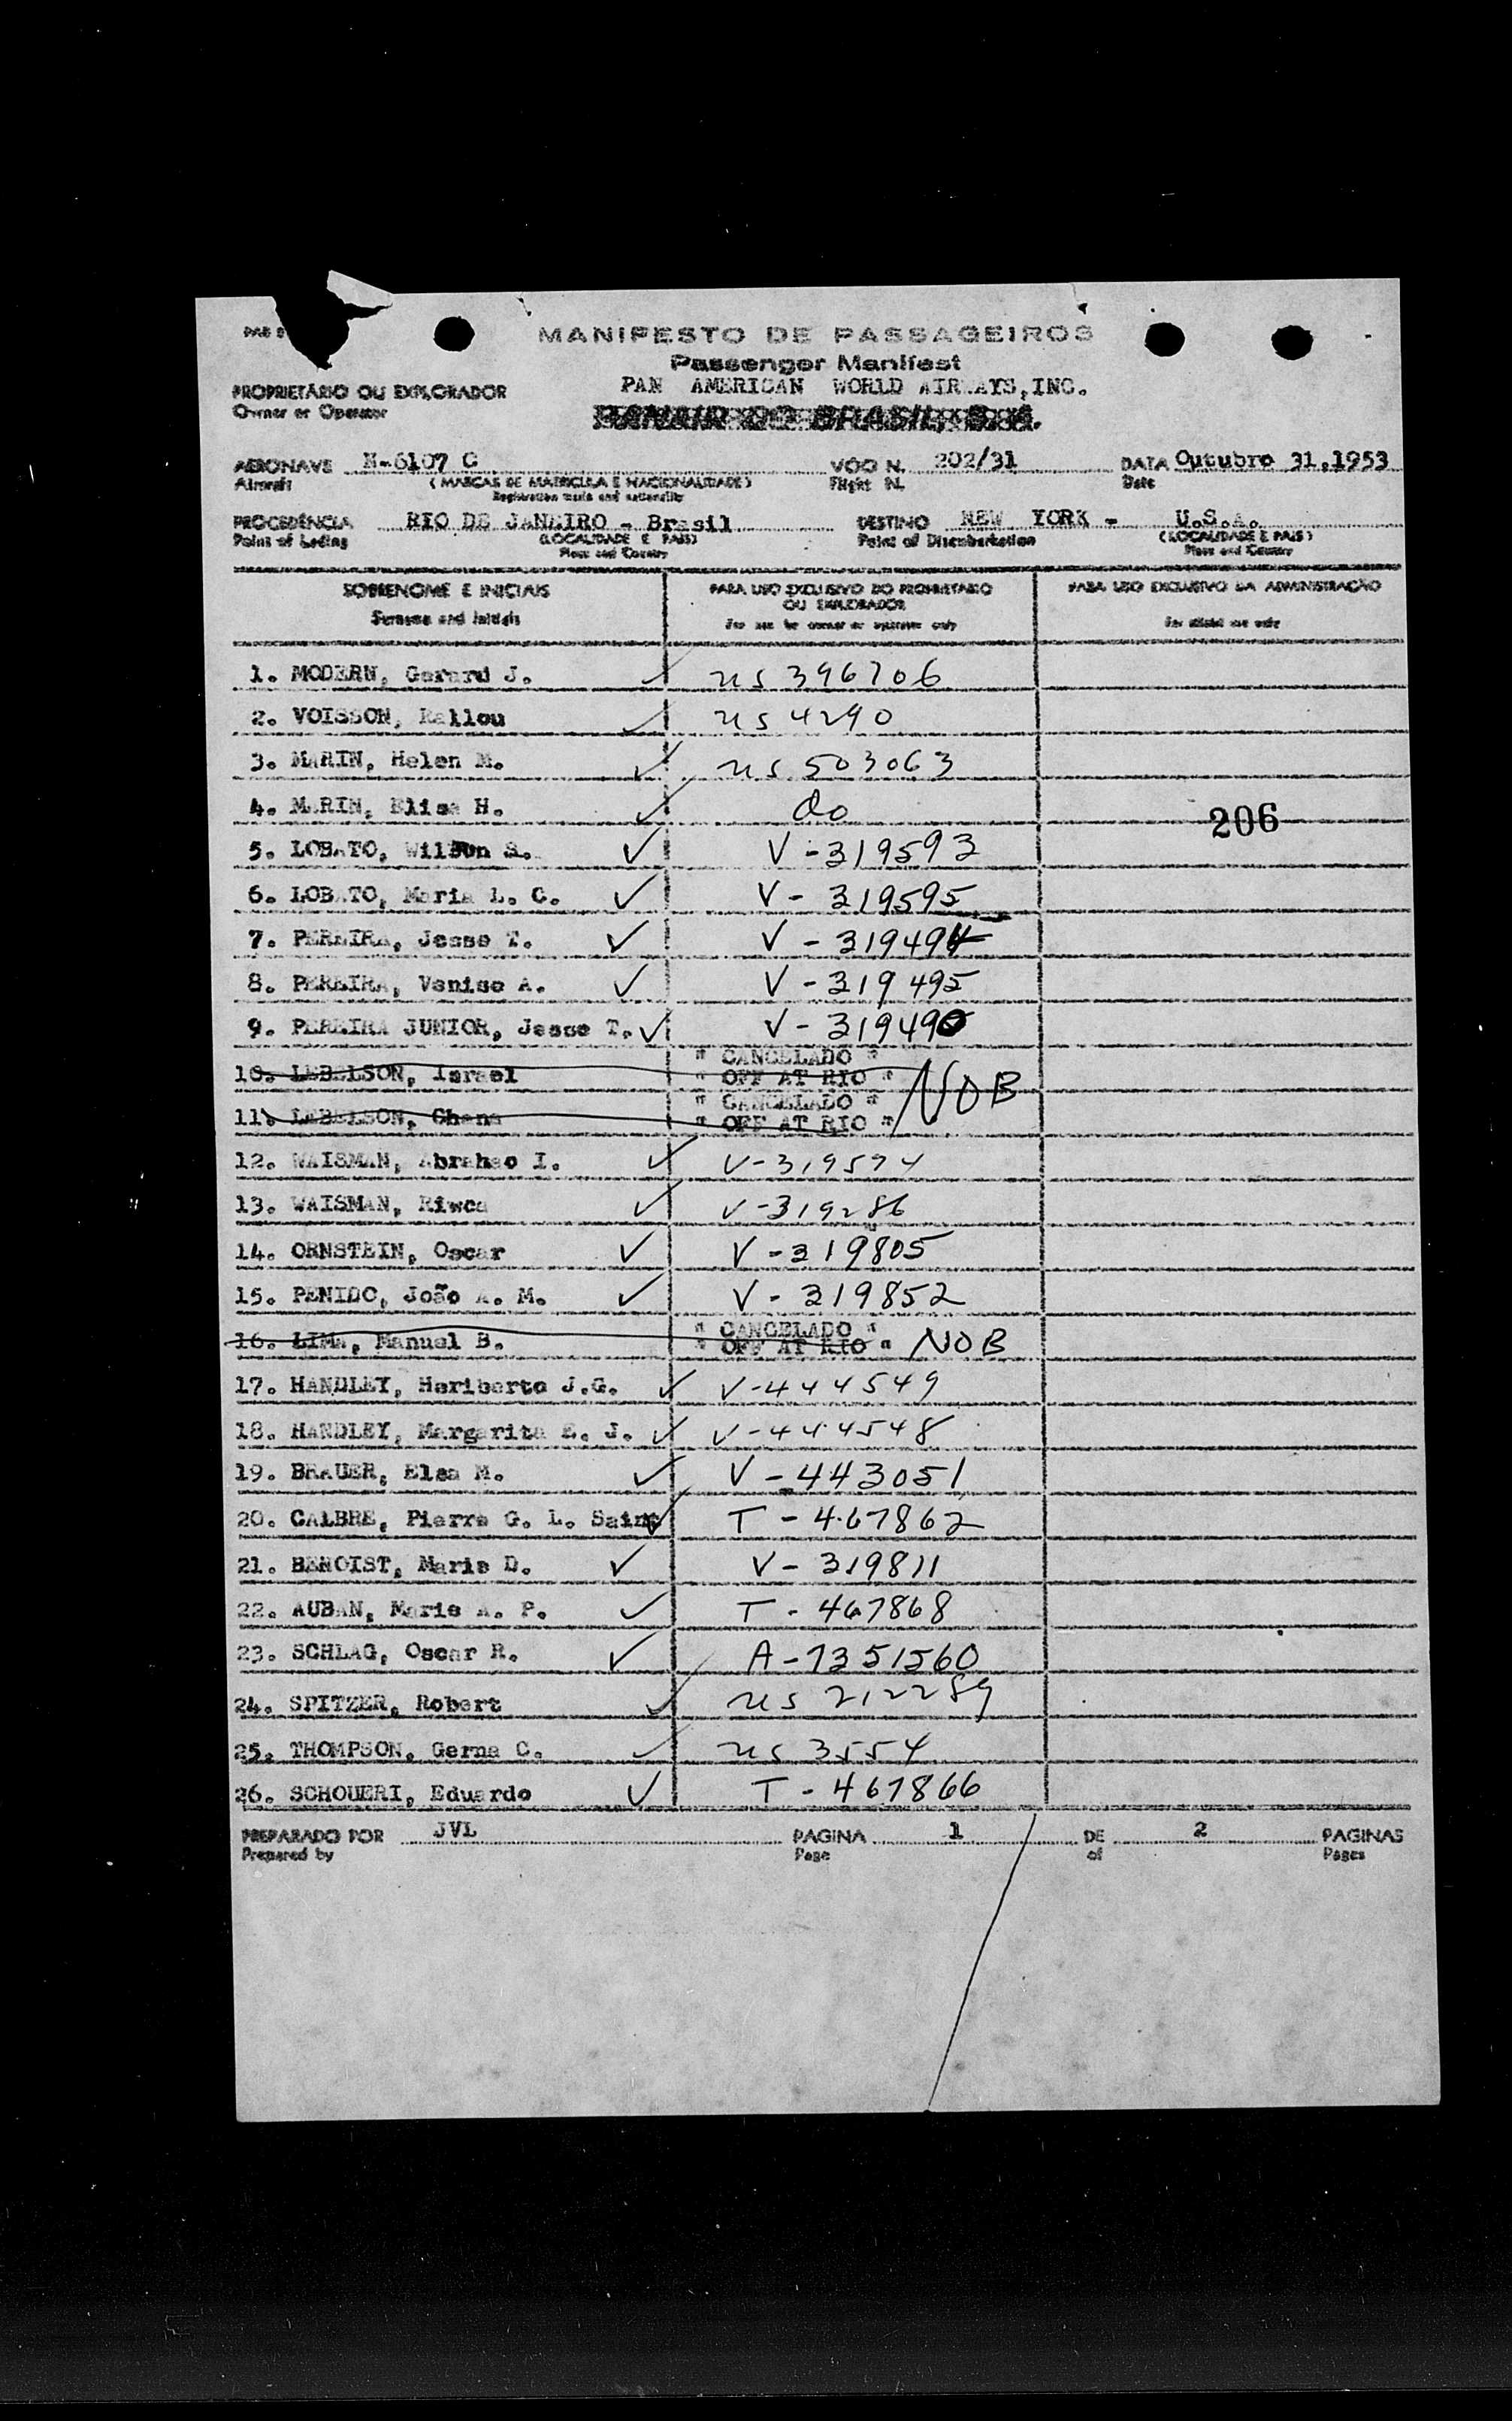 PAB
MANIFESTO DE PASSAGEIROS
Passenger Manifest
PROPRIETÁRIO OU EXPLORADOR PAN AMERICAN WORLD AIRWAYS, INC.
Owner or Operator PANAIR DO BRASIL, S. A.
AERONAVE N-6107 C VÔO N. 202/31 DATA Outubro 31.1953
Aircraft (MARCAS DE MATRICULA E NACIONALIDADE) Flight N. Date
Registration marks and nationality
PROCEDÊNCIA RIO DE JANEIRO - Brasil DESTINO NEW YORK - U.S.A.
Point of Lading (LOCALIDADE E PAIS) Point of Disembarkation (LOCALIDADE E PAIS)
Place and Country Place and Country
SOBRENOME E INICIAIS PARA USO EXCLUSIVO DO PROPRIETARIO OU EXPLORADOR PARA USO EXCLUSIVO DA ADMINISTRAÇÃO
Surname and Initials For use by owner or operator only For official use only
1. MODERN, Gerard J. US 396706
2. VOISSON, Rallou US 4290
3. MARIN, Helen M. US 503063
4. MARIN, Elisa H. do
206
5. LOBATO, Wilson S. V-319593
6. LOBATO, Maria L. C. V-319595
7. PEREIRA, Jesse T. V-319494
8. PEREIRA, Venise A. V-319495
9. PEREIRA JUNIOR, Jesse T. V-319490
10. LEBELSON, Israel " CANCELADO " " OFF AT RIO " NOB
11. LEBELSON, Chana " CANCELADO " " OFF AT RIO "
12. WAISMAN, Abrahao I. V-319594
13. WAISMAN, Riwca V-319286
14. ORNSTEIN, Oscar V-319805
15. PENIDO, João A. M. V-319852
16. LIMA, Manuel B. " CANCELADO " " OFF AT RIO " NOB
17. HANDLEY, Heriberto J.G. V-444549
18. HANDLEY, Margarita E. J. V-444548
19. BRAUER, Elsa M. V-443051
20. CALBRE, Pierre G. L. Saint T-467862
21. BENOIST, Marie D. V-319811
22. AUBAN, Marie A. P. T-467868
23. SCHLAG, Oscar R. A-7351560
24. SPITZER, Robert US 212289
25. THOMPSON, Gerna C. US 3554
26. SCHOUERI, Eduardo T-467866
PREPARADO POR JVL PAGINA 1 DE 2 PAGINAS
Prepared by Page of Pages